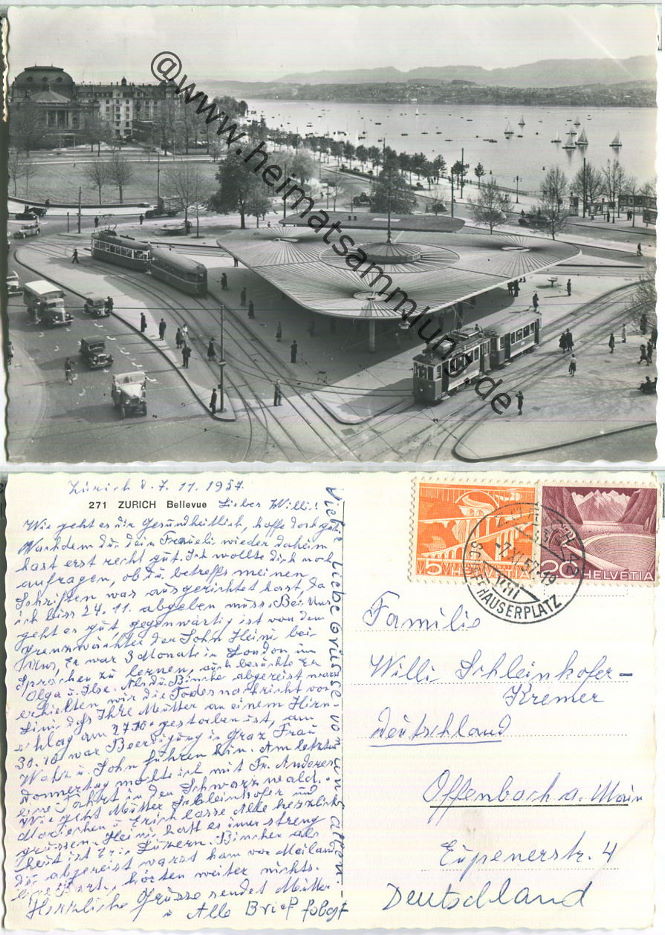 @www.heimatsammlung.de
Zürich 8. 7. 11. 1957
271 ZURICH Bellevue Lieber Willi!
Wie geht es dir Gesundheitlich, hoffe doch gut
Nachdem du dein Fraueli wieder daheim
hast erst recht gut. Ich wollte dich noch
anfragen, ob du betreffs meinen
Schriften was ausgerichtet hast, da
ich bis 24. 11. abgeben muss. Bei uns
geht es gut gegenwärtig ist von dem
Grenzwächter der Sohn Heini bei
uns. Er war 3 Monate in London um
Sprachen zu lernen, auch besuchte Er
Olga u. Ilse. Als du abgereist warst
erhielten wir die Todesnachricht von
Lini das Ihre Mutter an einem Hirn-
schlag am 27.10. gestorben ist, am
30. 10. war Beerdigung in Graz Frau
u. Sohn führen hin. Am letzten
Donnerstag machte ich mit Fr. Anderes
eine Fahrt in den Schwarzwald.
Wie geht Mutter Schleinkofer und
Mariechen u. Erich lasse Alle herzlich
grüssen. Heini hatt es immer streng
heut ist Er in Luzern. als
du abgereist warst kam von Mailand
eine Karte, hörten weiter nichts.
Herzliche Grüsse sendet Mutter
u. Alle Brief folgt
Viele liebe Grüsse von uns allen.
Familie
Willi Schleinkofer-
Kremer
Deutschland
Offenbach a. Main
Eupenerstr. 4
Deutschland
5 HELVETIA
20 HELVETIA
-7.XI.57-19
VIII
SCHAFFHAUSERPLATZ